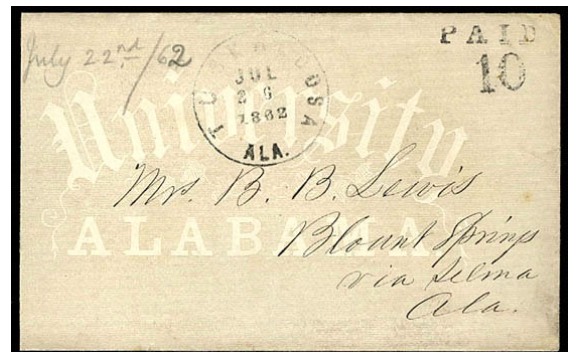 July 22nd/62
PAID
10
TUSKALOOSA
JUL
26
1862
ALA.
University
ALABAMA
Mrs. B. B. Lewis
Blount Springs
via Selma
Ala.